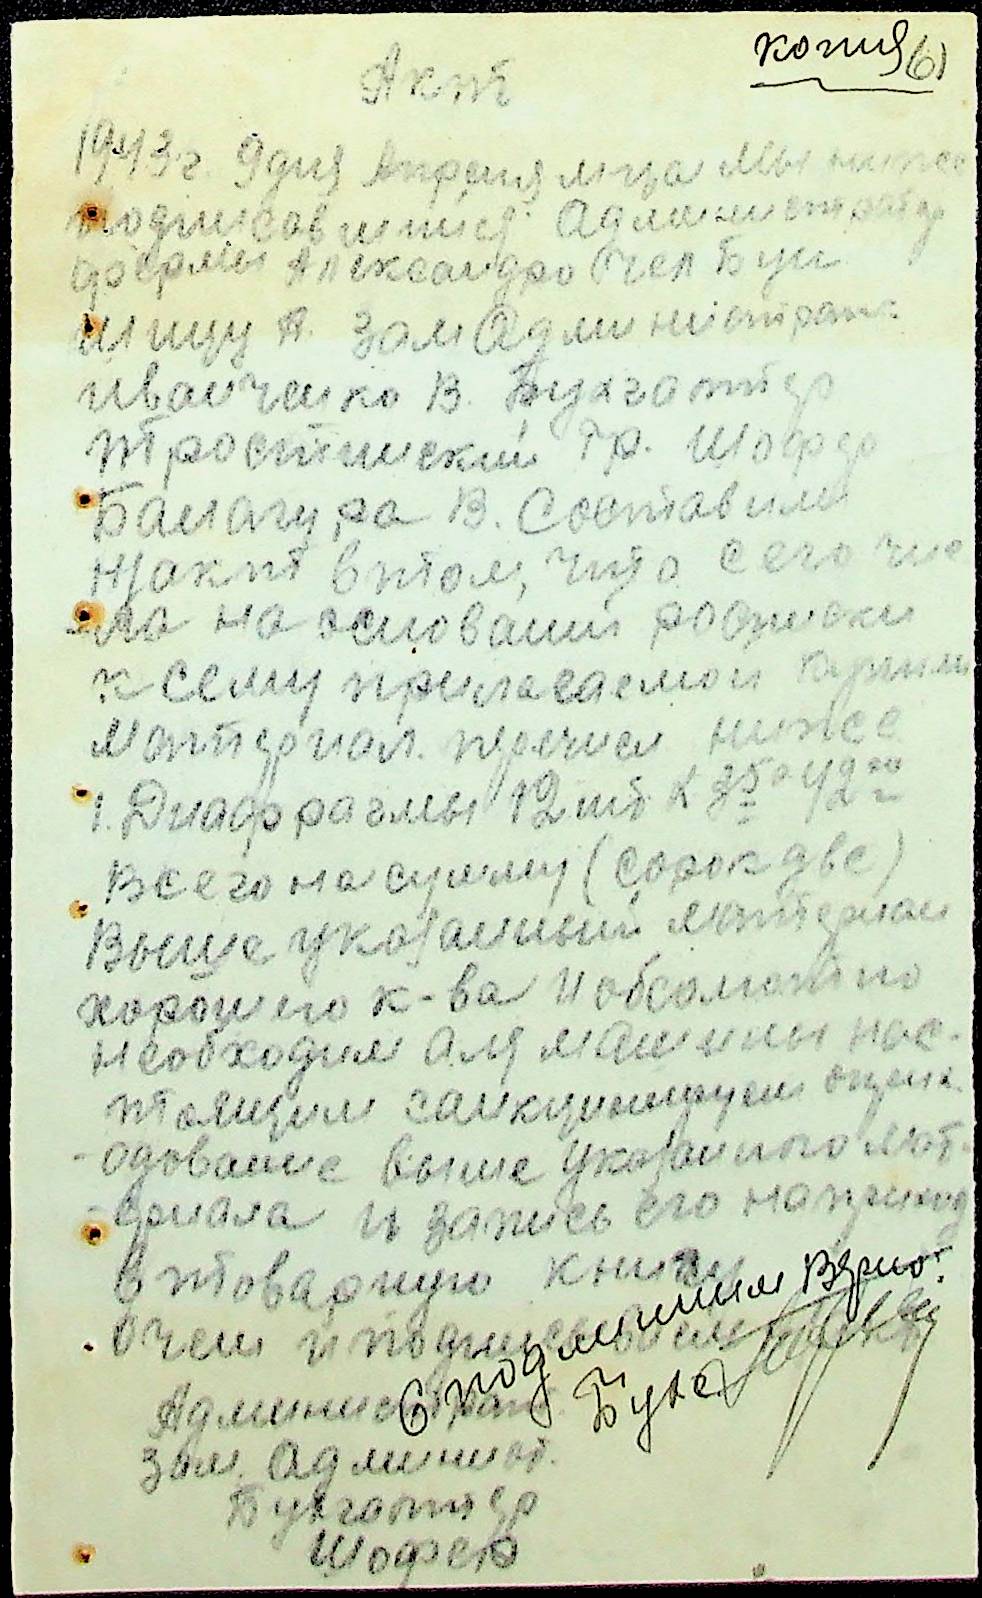 копия (6)
Акт
1943 г. 9 дня Апреля м-ца мы ниже
подписавшиеся Администратор
фермы Александро Чел Бун
А. Зам Администрат.
Иванченко В. Бухгалтер
Тростинский Гр. Шофер
Балагура В. Составили
н/акт в том, что сего чис
-ла на основании росписки
к сему прилагаемой купили
материал перечисл ниже
1. Диафрагмы 12 шт х 3 5 - 42 00
Всего на сумму (сорок две)
Выше указанный материал
хорошего к-ва и обсолютно
необходим для машины нас-
тоящим санкционируем
-одование выше указанного мат-
-ериала и запись его наприход
в товарную книгу
О чем и подписываемся
С подлинным верно:
Бухг
Администрат.
Зам. Админист.
Бухгалтер
Шофер